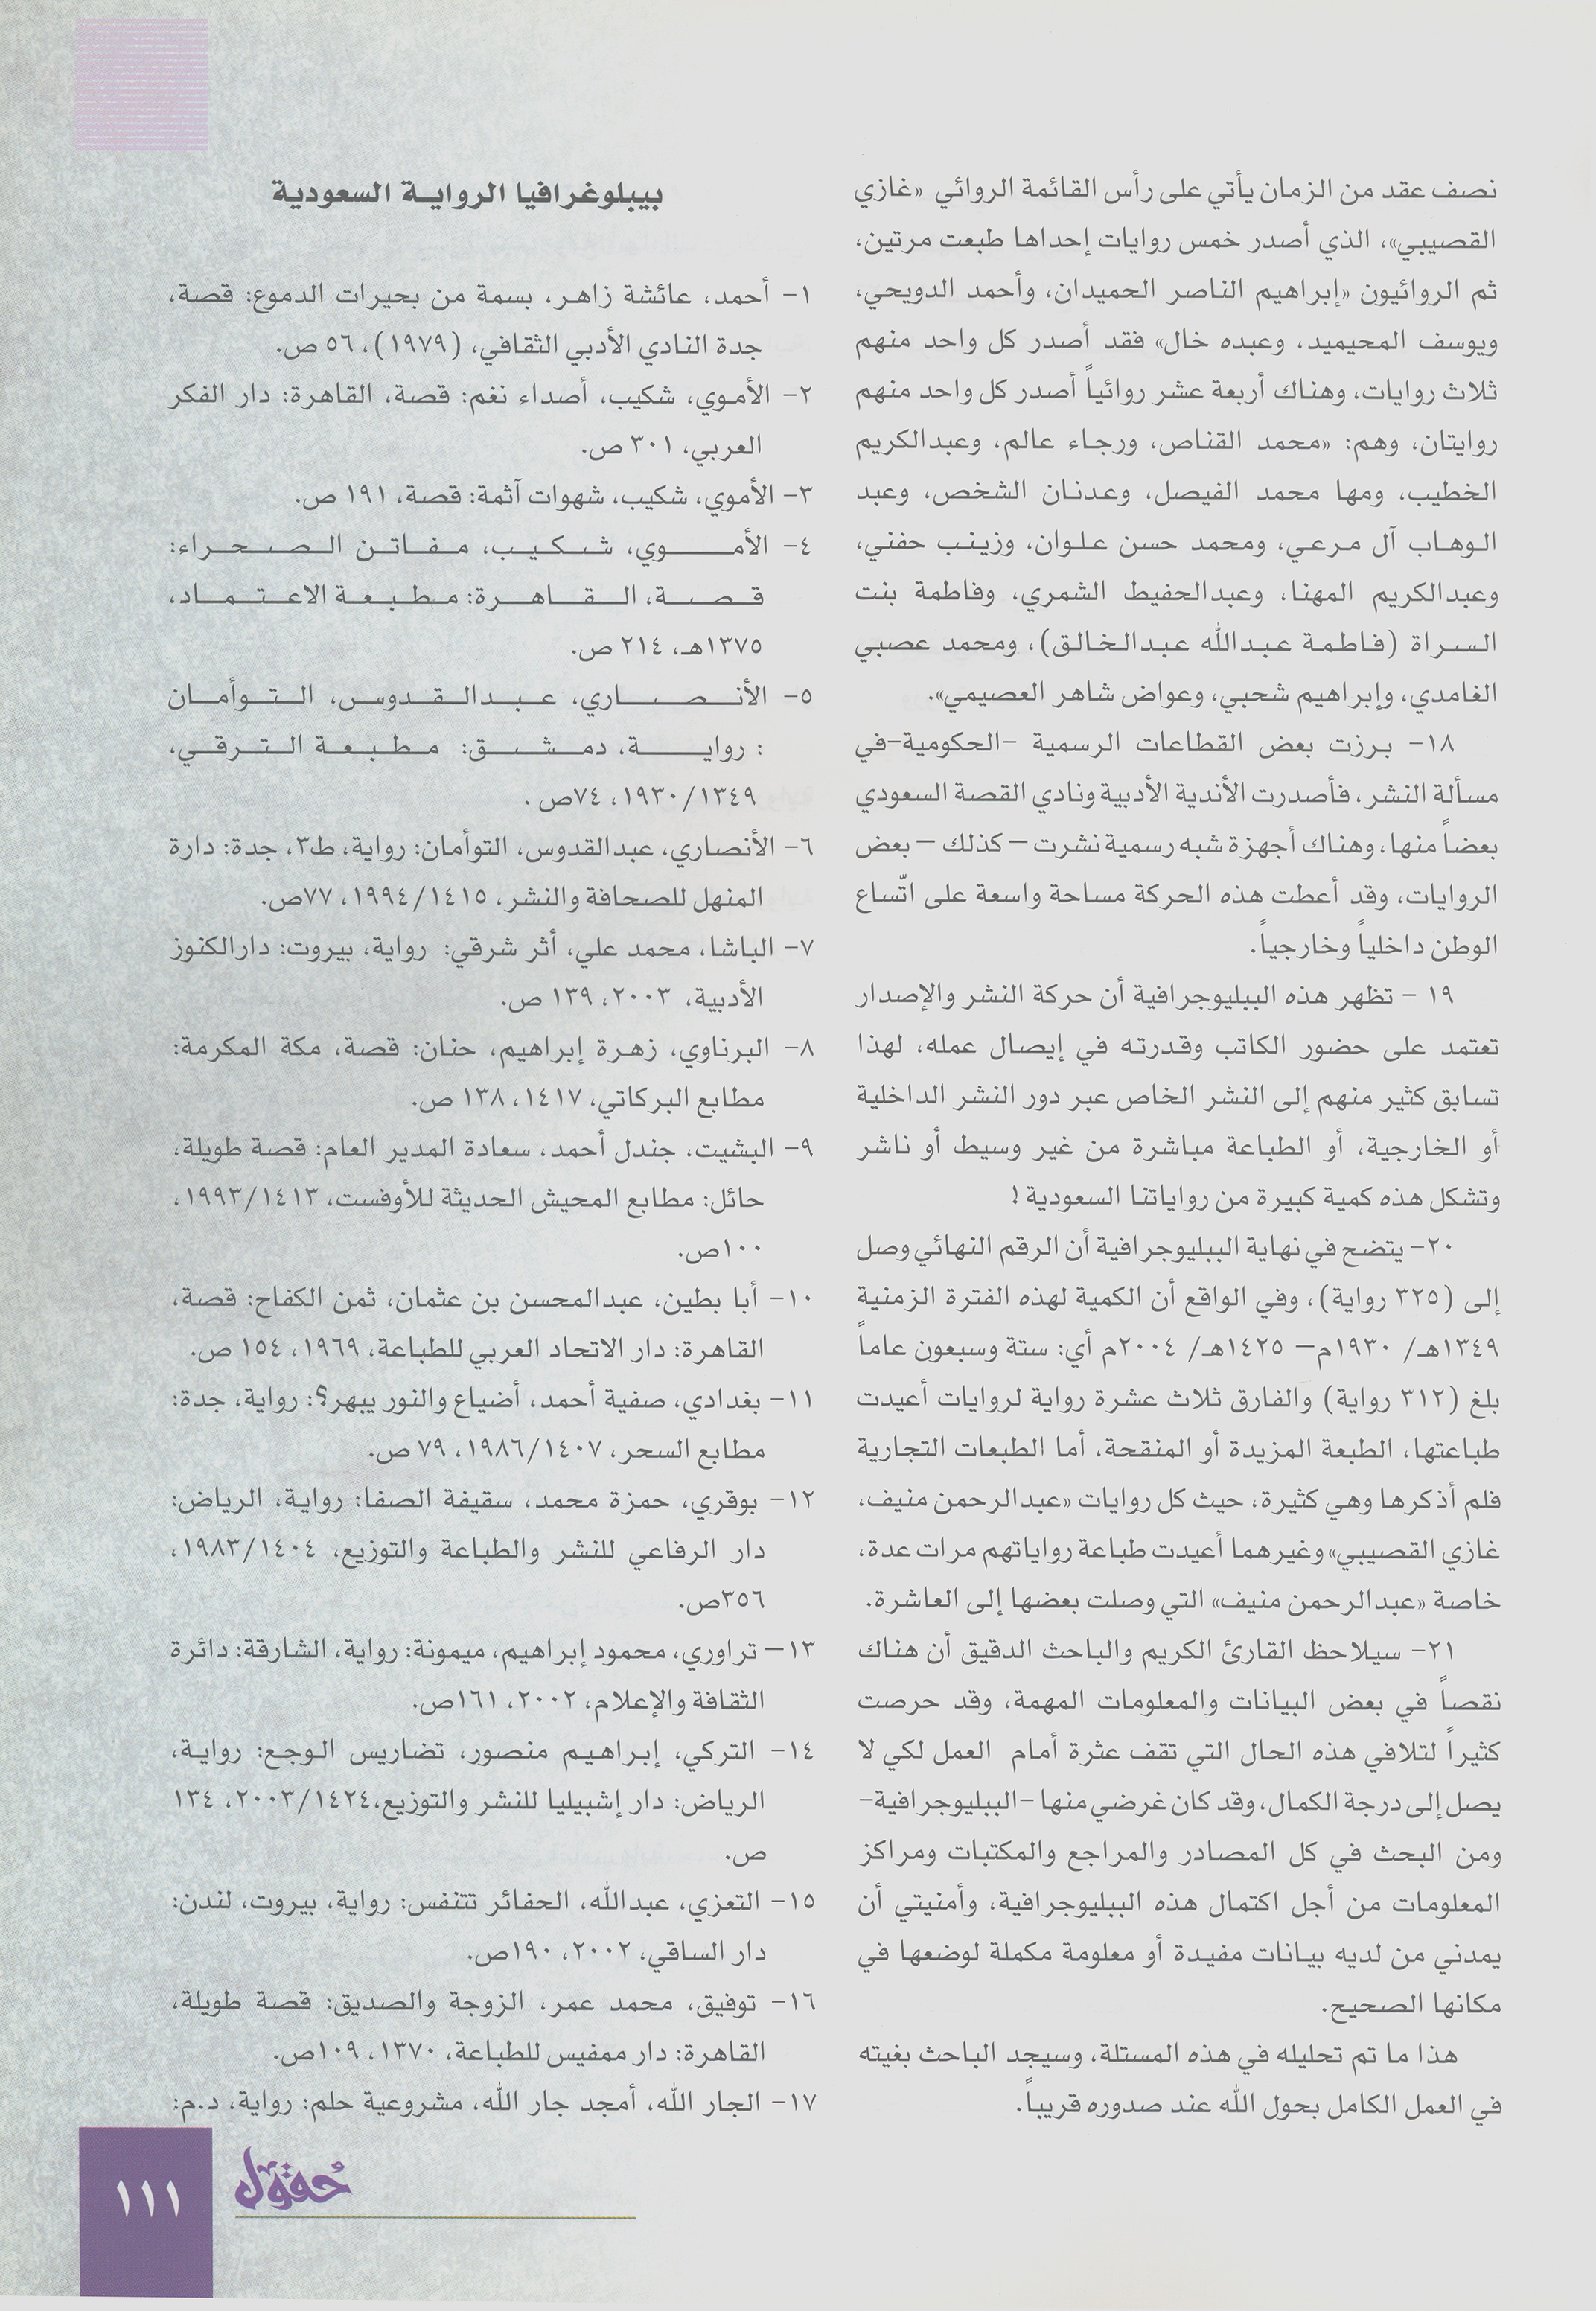 نصف عقد من الزمان يأتي على رأس القائمة الروائي «غازي
القصيبي»، الذي أصدر خمس روايات إحداها طبعت مرتين،
ثم الروائيون «إبراهيم الناصر الحميدان، وأحمد الدويحي،
ويوسف المحيميد، وعبده خال» فقد أصدر كل واحد منهم
ثلاث روايات، وهناك أربعة عشر روائياً أصدر كل واحد منهم
روايتان، وهم: «محمد القناص، ورجاء عالم، وعبدالكريم
الخطيب، ومها محمد الفيصل، وعدنان الشخص، وعبد
الوهاب آل مرعي، ومحمد حسن علوان، وزينب حفني،
وعبدالكريم المهنا، وعبدالحفيظ الشمري، وفاطمة بنت
السراة (فاطمة عبدالله عبدالخالق)، ومحمد عصبي
الغامدي، وإبراهيم شحبي، وعواض شاهر العصيمي».
١٨- برزت بعض القطاعات الرسمية -الحكومية-في
مسألة النشر، فأصدرت الأندية الأدبية ونادي القصة السعودي
بعضاً منها، وهناك أجهزة شبه رسمية نشرت – كذلك – بعض
الروايات، وقد أعطت هذه الحركة مساحة واسعة على اتّساع
الوطن داخلياً وخارجياً.
١٩ - تظهر هذه الببليوجرافية أن حركة النشر والإصدار
تعتمد على حضور الكاتب وقدرته في إيصال عمله، لهذا
تسابق كثير منهم إلى النشر الخاص عبر دور النشر الداخلية
أو الخارجية، أو الطباعة مباشرة من غير وسيط أو ناشر
وتشكل هذه كمية كبيرة من رواياتنا السعودية !
٢٠- يتضح في نهاية الببليوجرافية أن الرقم النهائي وصل
إلى (٣٢٥ رواية)، وفي الواقع أن الكمية لهذه الفترة الزمنية
١٣٤٩هـ/ ١٩٣٠م– ١٤٢٥هـ/ ٢٠٠٤م أي: ستة وسبعون عاماً
بلغ (٣١٢ رواية) والفارق ثلاث عشرة رواية لروايات أعيدت
طباعتها، الطبعة المزيدة أو المنقحة، أما الطبعات التجارية
فلم أذكرها وهي كثيرة، حيث كل روايات «عبدالرحمن منيف،
غازي القصيبي» وغيرهما أعيدت طباعة رواياتهم مرات عدة،
خاصة «عبدالرحمن منيف» التي وصلت بعضها إلى العاشرة.
٢١- سيلاحظ القارئ الكريم والباحث الدقيق أن هناك
نقصاً في بعض البيانات والمعلومات المهمة، وقد حرصت
كثيراً لتلافي هذه الحال التي تقف عثرة أمام العمل لكي لا
يصل إلى درجة الكمال، وقد كان غرضي منها -الببليوجرافية-
ومن البحث في كل المصادر والمراجع والمكتبات ومراكز
المعلومات من أجل اكتمال هذه الببليوجرافية، وأمنيتي أن
يمدني من لديه بيانات مفيدة أو معلومة مكملة لوضعها في
مكانها الصحيح.
هذا ما تم تحليله في هذه المستلة، وسيجد الباحث بغيته
في العمل الكامل بحول الله عند صدوره قريباً.
بيبلوغرافيا الرواية السعودية
١- أحمد، عائشة زاهر، بسمة من بحيرات الدموع: قصة،
جدة النادي الأدبي الثقافي، (١٩٧٩)، ٥٦ ص.
٢- الأموي، شكيب، أصداء نغم: قصة، القاهرة: دار الفكر
العربي، ٣٠١ ص.
٣- الأموي، شكيب، شهوات آثمة: قصة، ١٩١ ص.
٤- الأموي، شكيب، مفاتن الصحراء:
قصة، القاهرة: مطبعة الاعتماد،
١٣٧٥هـ، ٢١٤ ص.
٥- الأنصاري، عبدالقدوس، التوأمان
: رواية، دمشق: مطبعة الترقي،
١٩٣٠/١٣٤٩، ٧٤ص .
٦- الأنصاري، عبدالقدوس، التوأمان: رواية، ط٣، جدة: دارة
المنهل للصحافة والنشر، ١٩٩٤/١٤١٥، ٧٧ص.
٧- الباشا، محمد علي، أثر شرقي: رواية، بيروت: دارالكنوز
الأدبية، ٢٠٠٣، ١٣٩ ص.
٨- البرناوي، زهرة إبراهيم، حنان: قصة، مكة المكرمة:
مطابع البركاتي، ١٤١٧، ١٣٨ ص.
٩- البشيت، جندل أحمد، سعادة المدير العام: قصة طويلة،
حائل: مطابع المحيش الحديثة للأوفست، ١٩٩٣/١٤١٣،
١٠٠ص.
١٠- أبا بطين، عبدالمحسن بن عثمان، ثمن الكفاح: قصة،
القاهرة: دار الاتحاد العربي للطباعة، ١٩٦٩، ١٥٤ ص.
١١- بغدادي، صفية أحمد، أضياع والنور يبهر؟: رواية، جدة:
مطابع السحر، ١٩٨٦/١٤٠٧، ٧٩ ص.
١٢- بوقري، حمزة محمد، سقيفة الصفا: رواية، الرياض:
دار الرفاعي للنشر والطباعة والتوزيع، ١٩٨٣/١٤٠٤،
٣٥٦ص.
١٣– تراوري، محمود إبراهيم، ميمونة: رواية، الشارقة: دائرة
الثقافة والإعلام، ٢٠٠٢، ١٦١ص.
١٤- التركي، إبراهيم منصور، تضاريس الوجع: رواية،
الرياض: دار إشبيليا للنشر والتوزيع،٢٠٠٣/١٤٢٤، ١٣٤
ص.
١٥- التعزي، عبدالله، الحفائر تتنفس: رواية، بيروت، لندن:
دار الساقي، ٢٠٠٢، ١٩٠ص.
١٦- توفيق، محمد عمر، الزوجة والصديق: قصة طويلة،
القاهرة: دار ممفيس للطباعة، ١٣٧٠، ١٠٩ص.
١٧- الجار الله، أمجد جار الله، مشروعية حلم: رواية، د.م:
حُقول
١١١